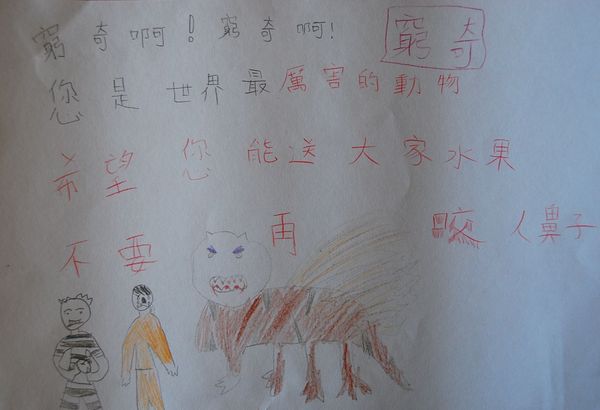 窮奇啊！窮奇啊！
窮奇
您是世界最厲害的動物
希望您能送大家水果
不要再咬人鼻子